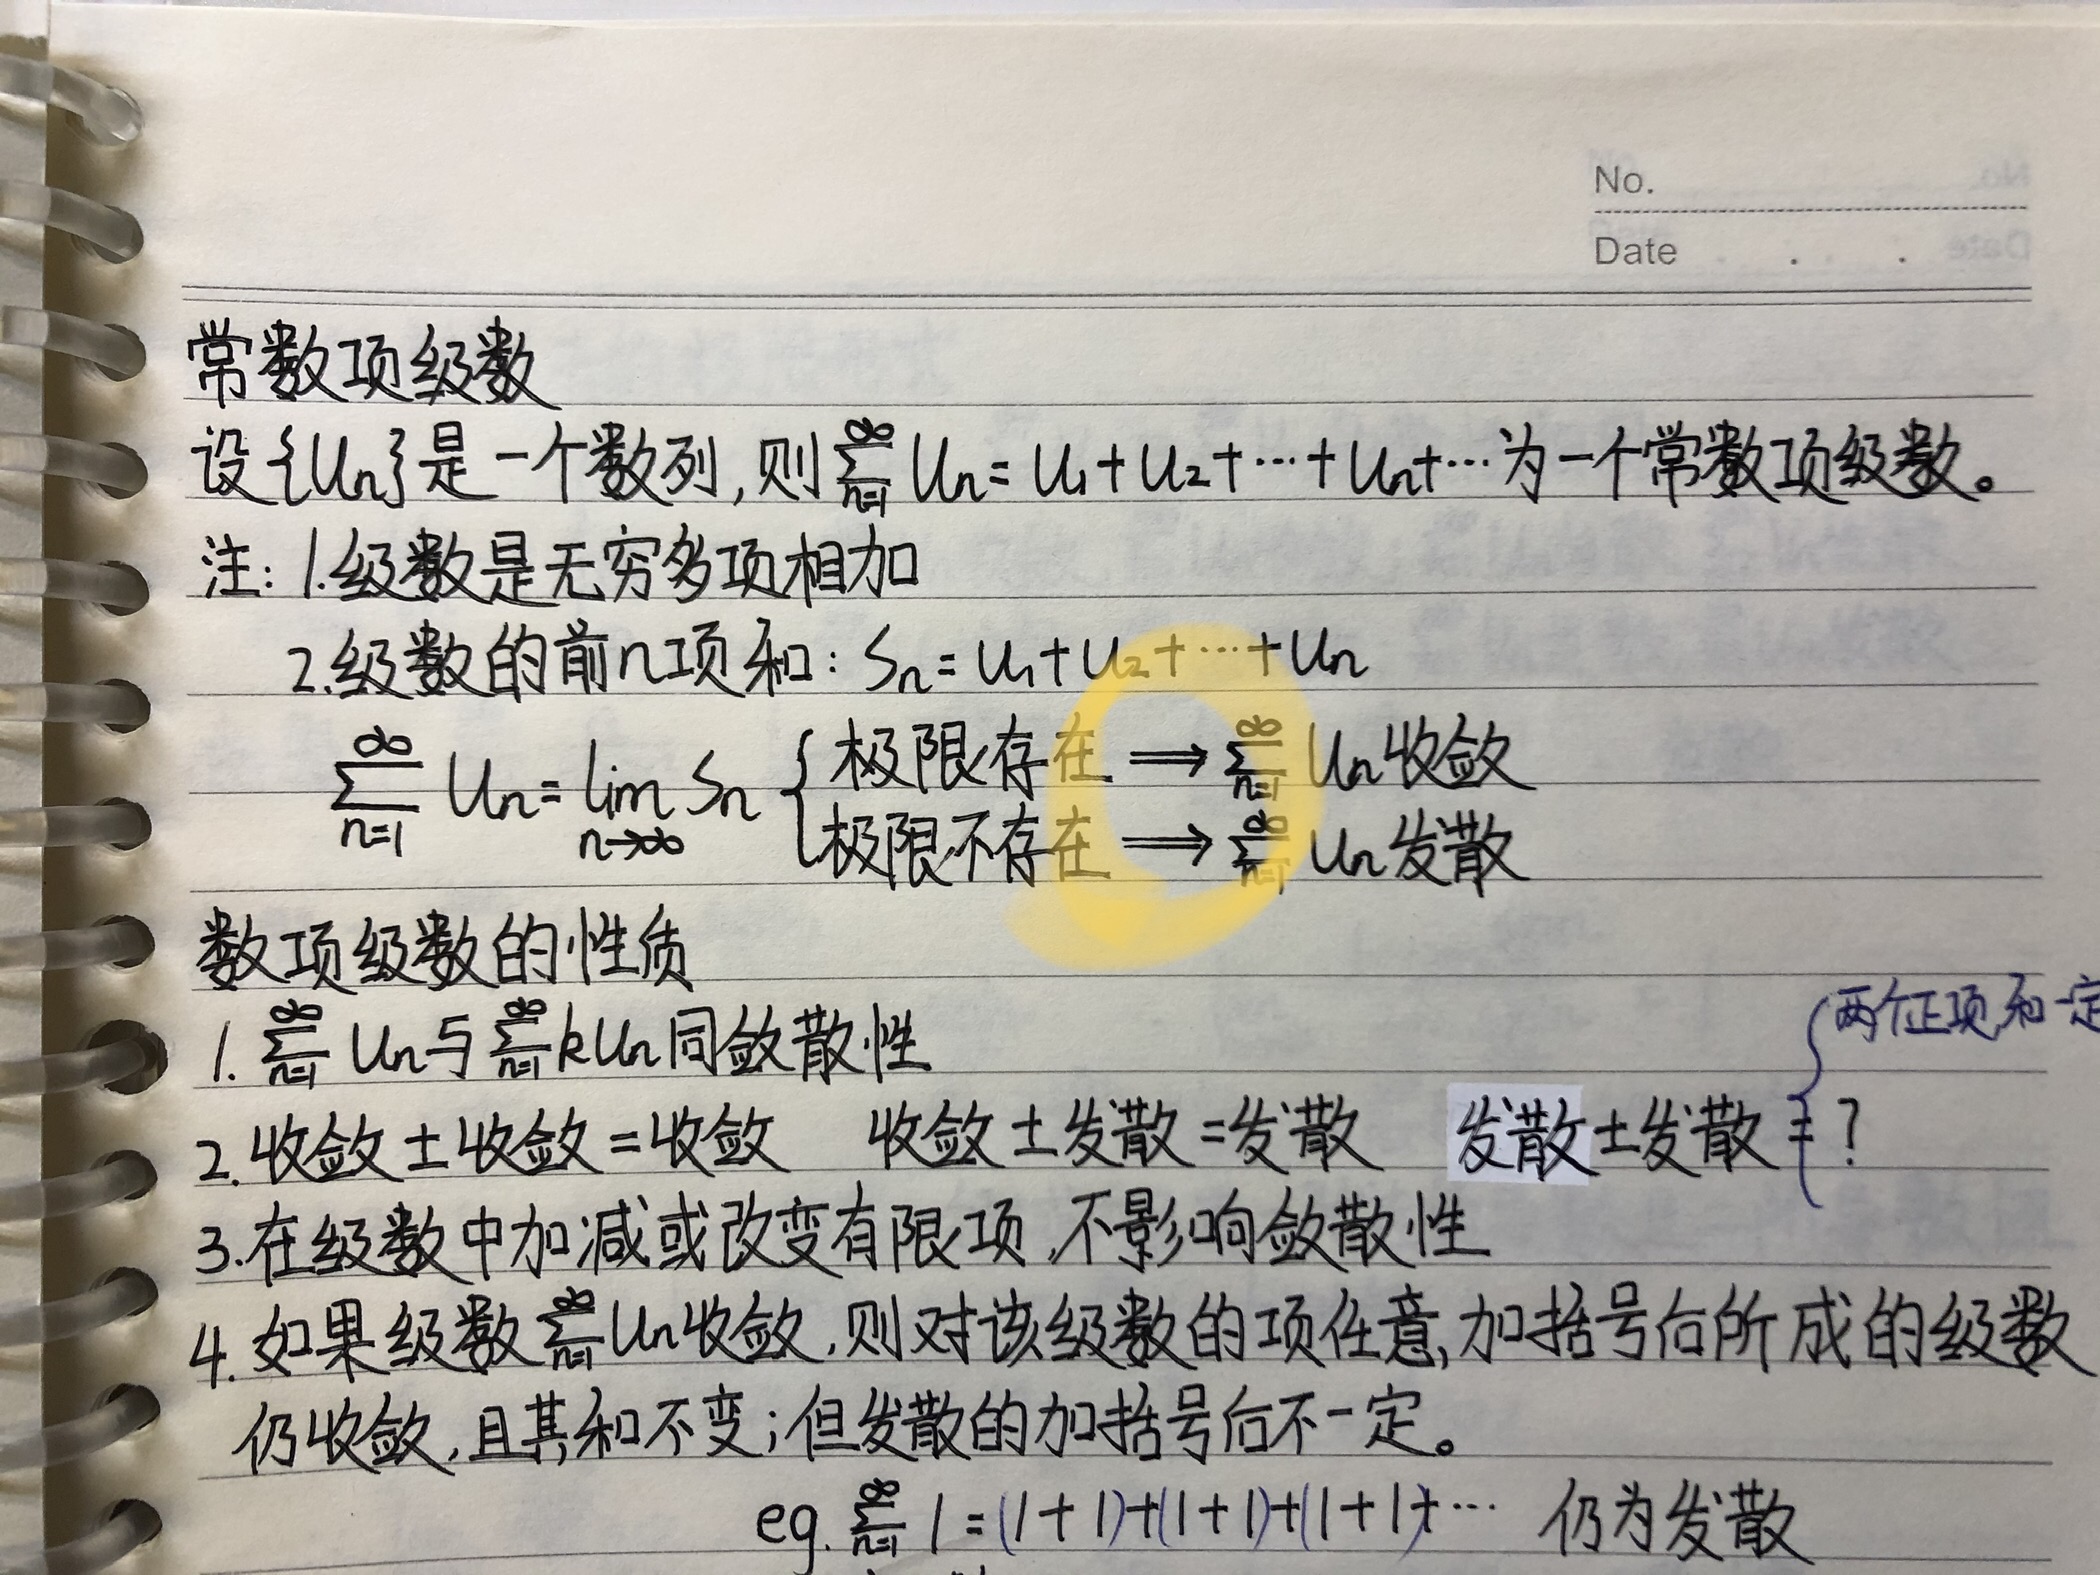 No.
Date
常数项级数
设{Un}是一个数列,则∑_{n=1}^{∞} Un = U1+U2+…+Un+…为一个常数项级数。
注:1.级数是无穷多项相加
2.级数的前n项和:Sn=U1+U2+…+Un
∑_{n=1}^{∞} Un = lim_{n→∞} Sn { 极限存在 ⟹ ∑_{n=1}^{∞} Un收敛
极限不存在 ⟹ ∑_{n=1}^{∞} Un发散
数项级数的性质
两个正项和一定
1. ∑_{n=1}^{∞} Un与∑_{n=1}^{∞} kUn同敛散性
2.收敛±收敛=收敛 收敛±发散=发散 发散±发散=?
3.在级数中加减或改变有限项,不影响敛散性
4.如果级数∑_{n=1}^{∞} Un收敛,则对该级数的项任意,加括号后所成的级数
仍收敛,且其和不变;但发散的加括号后不一定。
eg. ∑_{n=1}^{∞} 1=(1+1)+(1+1)+(1+1)+… 仍为发散